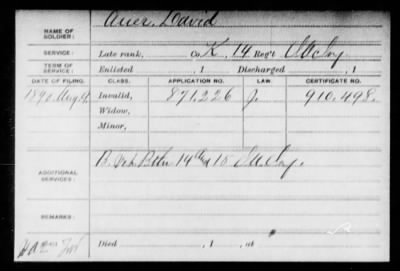 Auer, David
NAME OF SOLDIER:
SERVICE: Late rank, Co. K, 14 Reg't
TERM OF SERVICE: Enlisted , 1 Discharged , 1
DATE OF FILING. CLASS. APPLICATION NO. LAW. CERTIFICATE NO.
1890 Aug Invalid, 871.226 J. 910.498.
Widow,
Minor,
ADDITIONAL SERVICES: 14th & 18
REMARKS:
Died , 1 , at